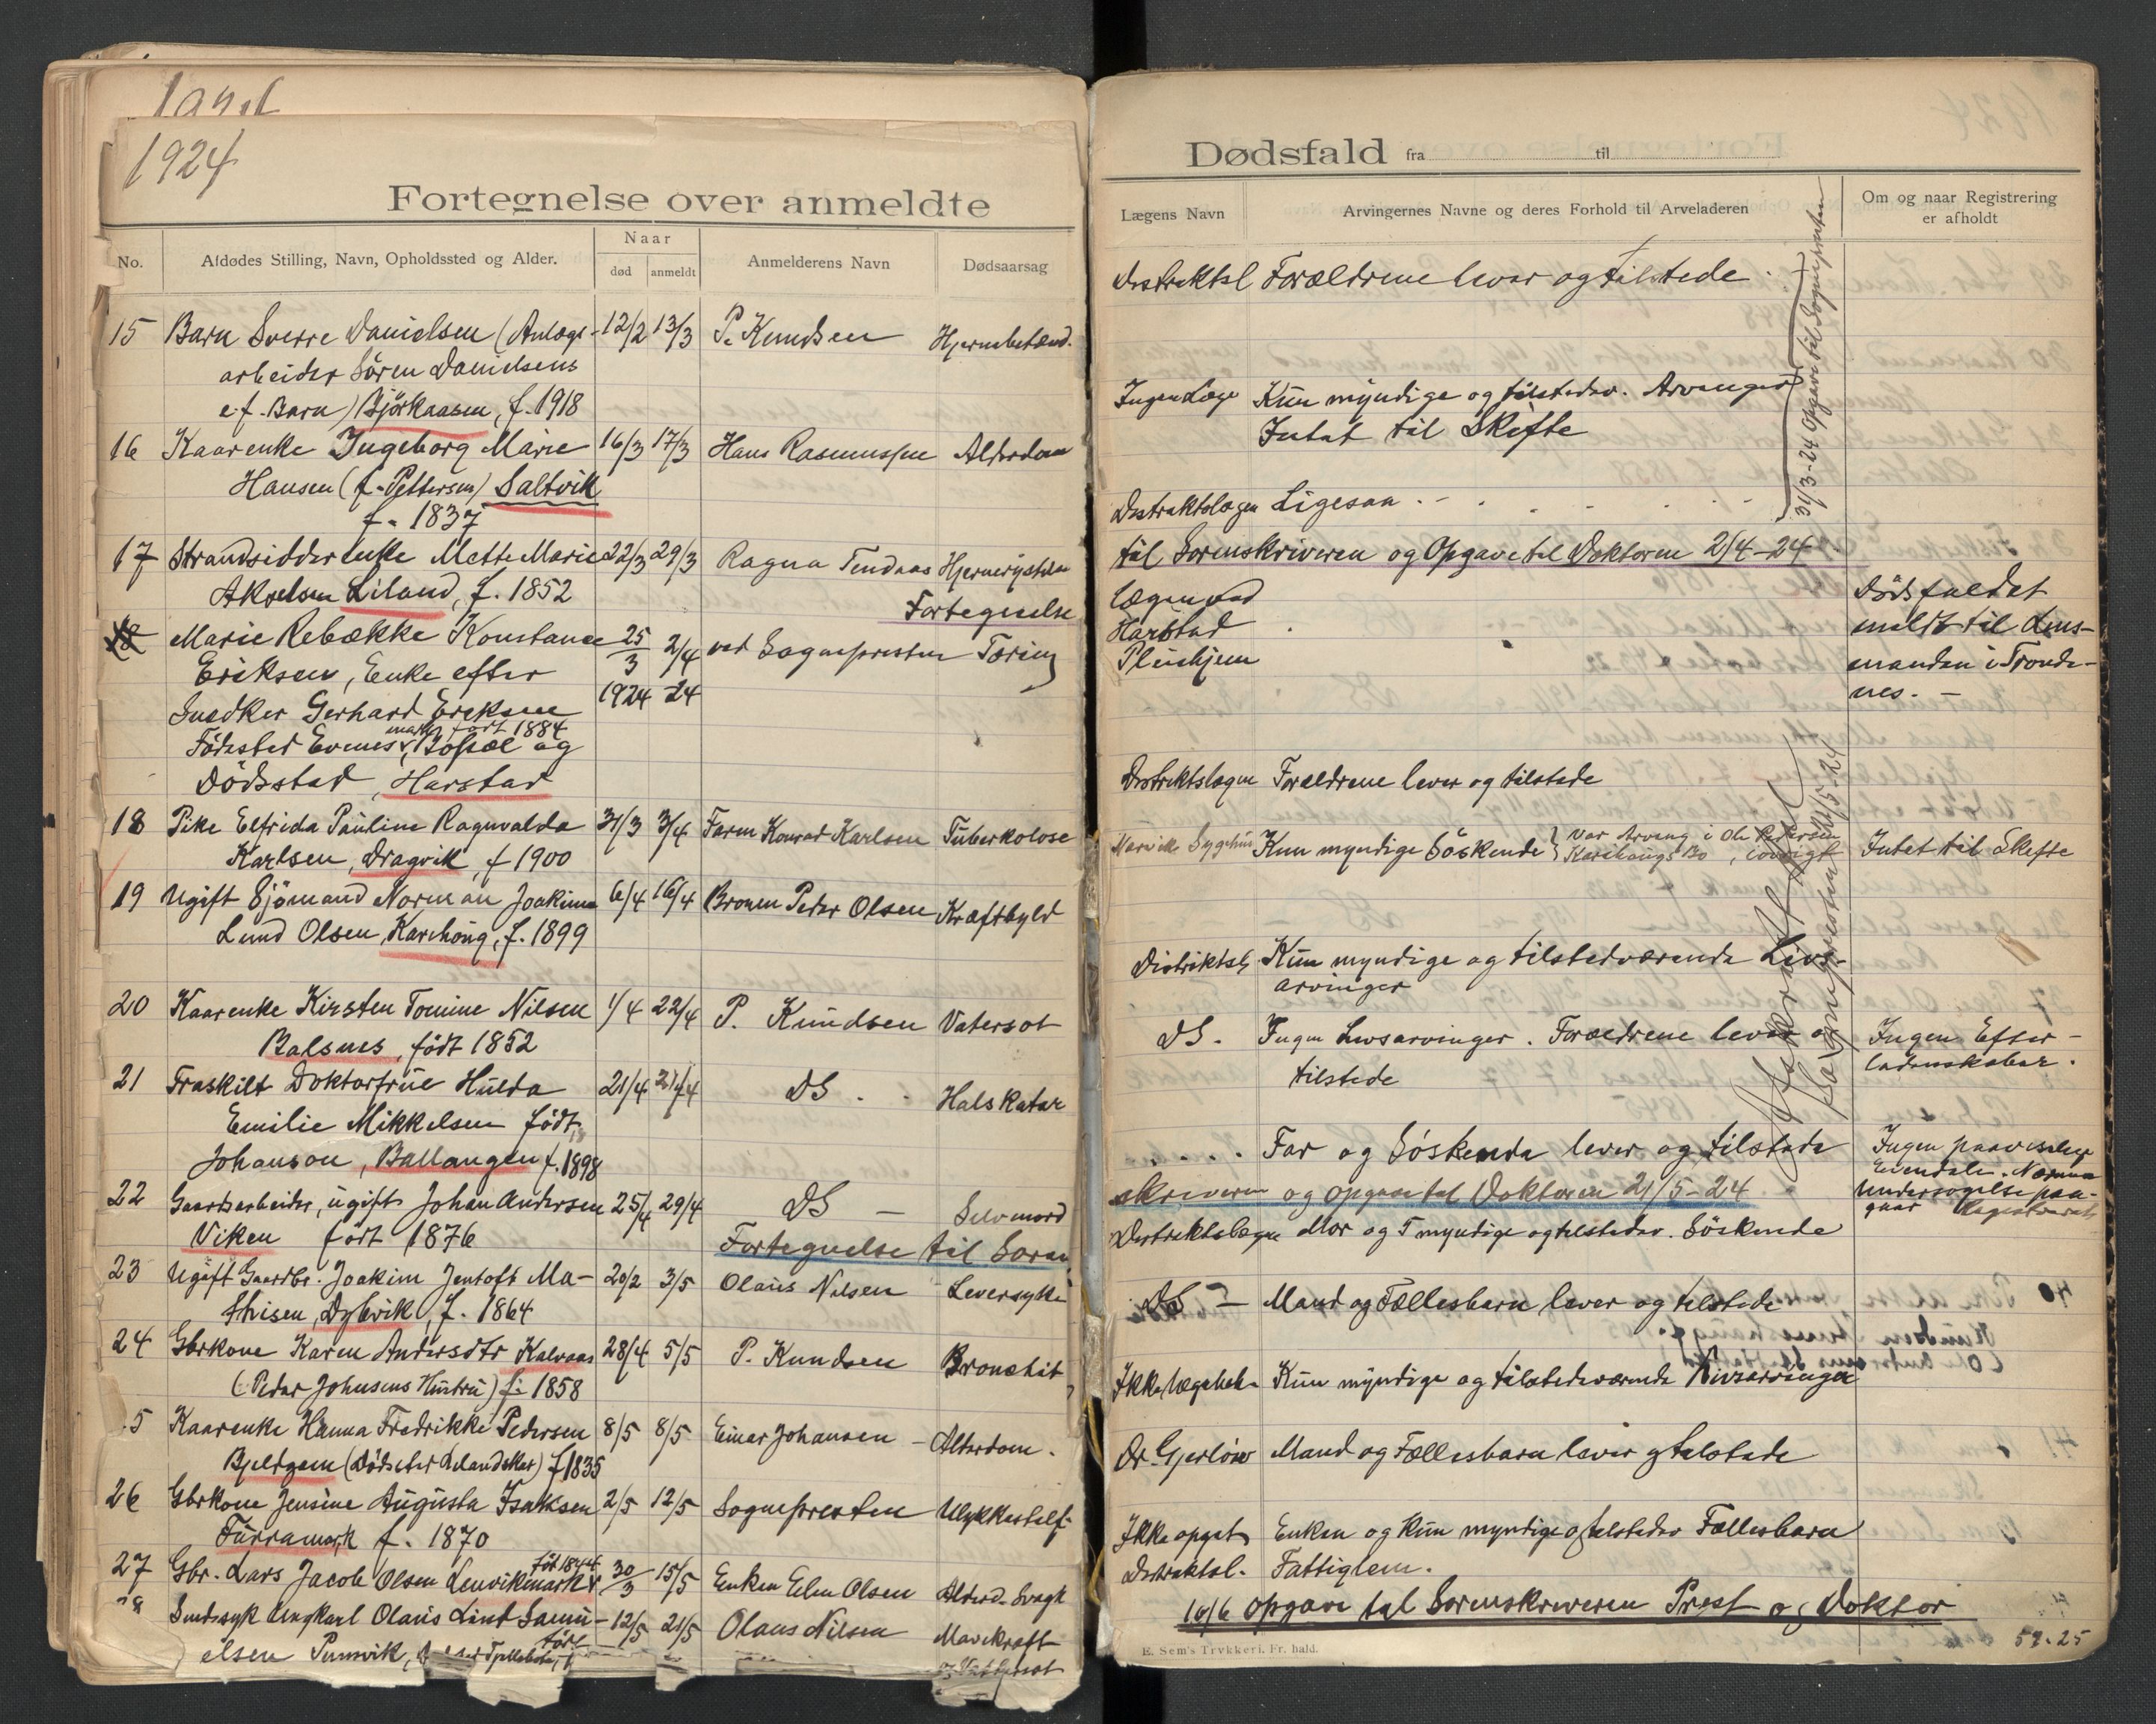 1924
Fortegnelse over anmeldte
No.
Afdødes Stilling, Navn, Opholdssted og Alder.
Naar
død
anmeldt
Anmelderens Navn
Dødsaarsag
15 Barn Sverre Danielsen (Anlægs- 12/2 13/3 P. Knudsen Hjernebetænd.
arbeider Sören Danielsens
e.f. Barn) Björkaasen, f. 1918
16 Kaarenke Ingeborg Marie 16/3 17/3 Hans Rasmussen Alderdom
Hansen (f. Pettersen) Saltvik
f. 1837
17 Strandsidderenke Mette Marie 22/3 29/3 Ragna Tendaas
Akselsen Liland, f. 1852
Fortegnelse
18 Marie Rebække Konstance 25/3 2/4 ved Sognepresten Toring
Eriksen, Enke efter 1924 24
Snedker Gerhard Ereksen
født 1884
Födested Evenesmark, Bopæl og
Dödsstad, Harstad
18 Pike Elfrida Pauline Ragnvalda 31/3 3/4 Faren Konrad Karlsen Tuberkolose
Karlsen, Dragvik, f 1900
19 Ugift Sjömand Norman Joakim 6/4 16/4 Broren Peder Olsen Kræftbyld
Lund Olsen, Karihaug, f. 1899
20 Kaarenke Kirsten Tomine Nilsen 1/4 22/4 P. Knudsen Vatersot
Balsnes, födt 1852
21 Fraskilt Doktorfrue Hulda 21/4 DS Halskatar
Emilie Mikkelsen födt
Johanson, Ballangen f. 1898
22 Gaardsarbeider, ugift Johan Andersen 25/4 29/4 DS — Selvmord
Viken födt 1876
Fortegnelse til Soren
23 Ugift Gaardbr. Joakim Jentoft Ma- 20/2 3/5 Olaus Nilsen Leversyke
thisen, Dybvik, f. 1864
24 Gbrkone Karen Andersdtr Kalvaas 28/4 5/5 P. Knudsen Bronchit
(Peder Johnsens Hustru) f. 1858
5 Kaarenke Hanna Fredrikke Pedersen 8/5 8/5 Einar Johansen - Alderdom.
Bjeldgam (Dödsster Lilandskar) f 1835
26 Gbrkone Jensine Augusta Isaksen 2/5 12/5 Sognepresten Ulykkestilf.
Furramark f. 1870
27 Gbr. Lars Jacob Olsen Lenvikmark föd 1844 30/3 15/5 Enken Elen Olsen Alderd. Svagh
Sindssyk Ungkarl Olaus Lind Samu- 12/5 21/5 Olaus Nilsen Mavekræft
elsen Punsvik,
og Vattersot
1924
Dødsfald fra til
Lægens Navn
Arvingernes Navne og deres Forhold til Arveladeren
Om og naar Registrering
er afholdt
Destriktsl Forældrene lever og tilstede
Ingen Læge Kun myndige og tilstedev. Arvinger
Intet til Skifte
31/3-24 Opgave til Sognepresten
Destriktslægen Ligesaa
til Sorenskriveren og Opgave til Doktoren 2/4-24
Lægen ved Dödsfaldet
Harstad meldt til Lens-
Pleiehjem manden i Tronde-
nes. —
Distriktslægen Forældrene lever og tilstede
Narvik Sygehus Kun myndige Söskende } var Arving i Ole Pedersen
Karihaugs Bo, iövrigt Intet til Skefte
Distriktsl. Kun myndige og tilstedværende Livs-
arvinger
DS. Ingen Livsarvinger. Forældrene lever og Ingen Efter-
tilstede ladenskaber.
Far og Söskende lever og tilstede Ingen paaviselig
Eiendele. Nærme
Undersögelse paa-
gaar
skriveren og opgave tel Doktoren 21/5-24
Destriktslægen Mor og 5 myndige og telstedev. Söskende
DS — Mand og Fællesbarn lever og telstede
Ikke lægebeh. Kun myndige og tilstedeværende Livsarvinger
Dr. Gjerlöw Mand og Fællesbarn lever og telstede
Ikke opgit Enken og kun myndige og telstedev Fællesbarn
Destriktsl. Fattiglem.
16/6 Opgave tel Sorenskreveren Prest og Doktor
E. Sem's Trykkeri. Fr. hald.
59.25